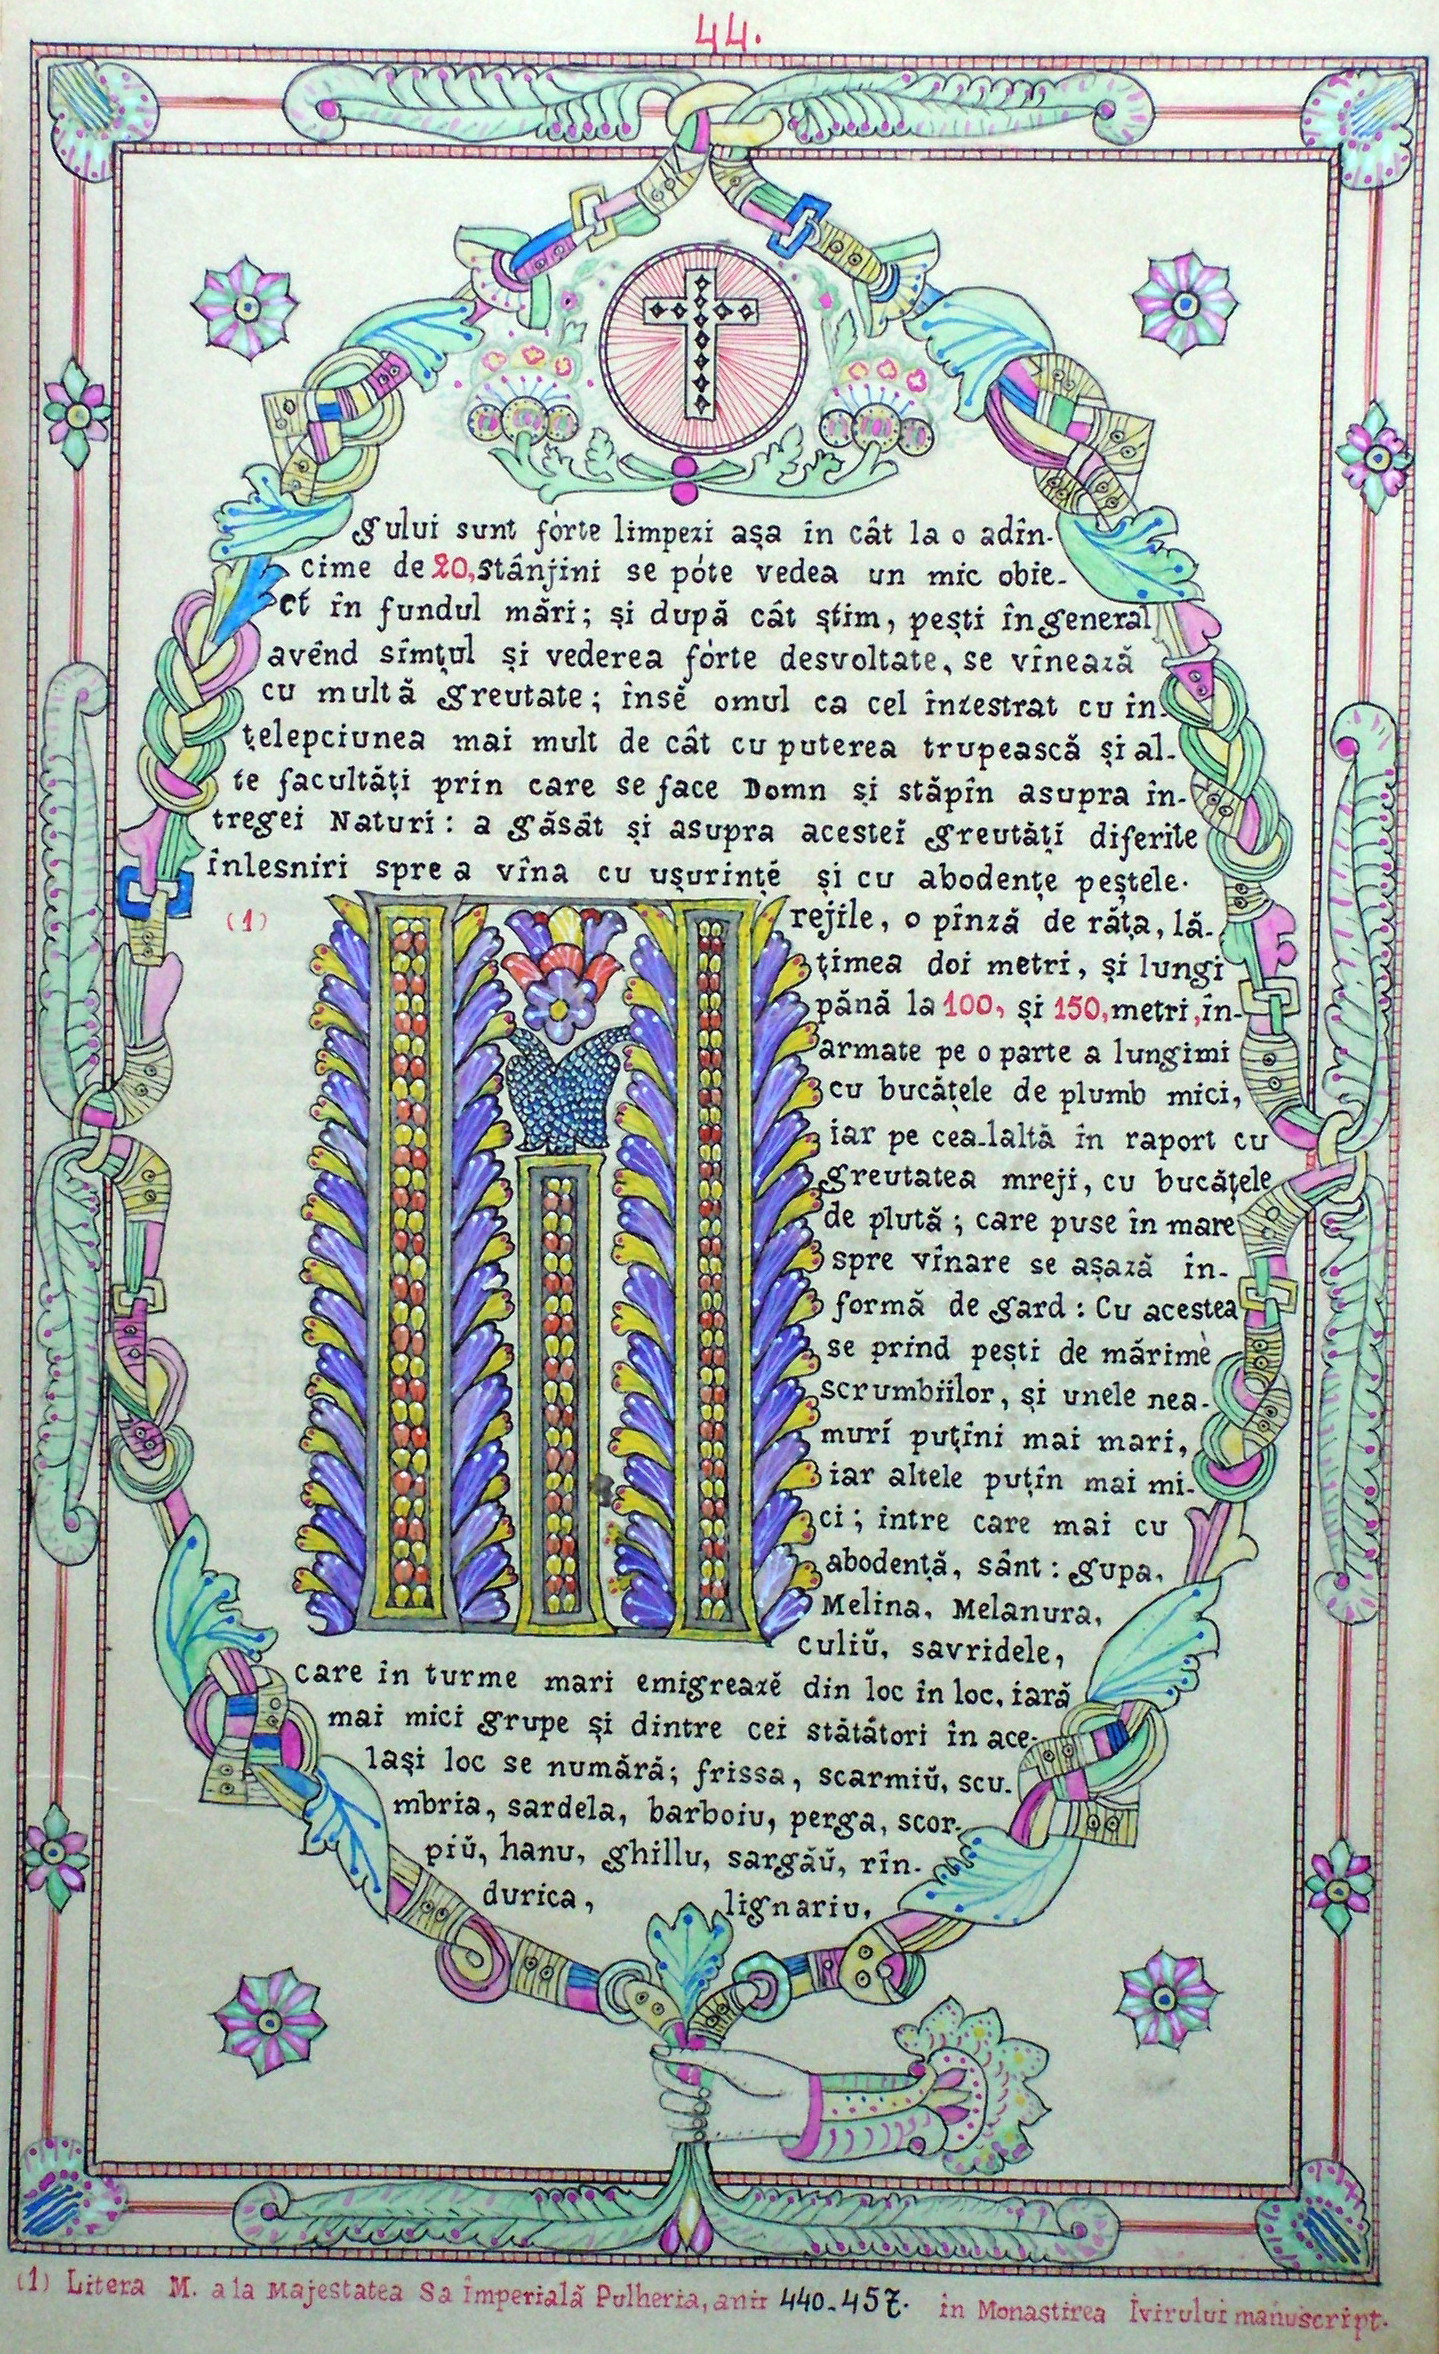 44.
gului sunt fórte limpezi așa în cât la o adîn-
cime de 20, stânjini se póte vedea un mic obie-
ct în fundul mări; și după cât știm, pești în general
avênd sîmțul și vederea fórte desvoltate, se vînează
cu multă greutate; însĕ omul ca cel înzestrat cu în-
țelepciunea mai mult de cât cu puterea trupească și al-
te facultăți prin care se face Domn și stăpîn asupra în-
tregei Naturi: a găsăt și asupra acestei greutăți diferite
înlesniri spre a vîna cu ușurințĕ și cu abodențe peștele.
(1)
M
rejile, o pînză de răța, lă-
țimea doi metri, și lungi
pănă la 100, și 150, metri, în-
armate pe o parte a lungimi
cu bucățele de plumb mici,
iar pe cea-laltă în raport cu
greutatea mreji, cu bucățele
de plută; care puse în mare
spre vînare se așază în-
formă de gard: Cu acestea
se prind pești de mărime
scrumbiilor, și unele nea-
muri puțini mai mari,
iar altele puțin mai mi-
ci; între care mai cu
abodență, sânt: gupa,
Melina, Melanura,
culiŭ, savridele,
care în turme mari emigreazĕ din loc în loc, iară
mai mici grupe și dintre cei stătători în ace-
lași loc se numără; frissa, scarmiŭ, scu-
mbria, sardela, barboiu, perga, scor-
piŭ, hanu, ghillu, sargăŭ, rîn-
durica, lignariu,
(1) Litera M. a la Majestatea Sa Împerială Pulheria, anii 440-457. în Monastirea Ivirului manuscript.